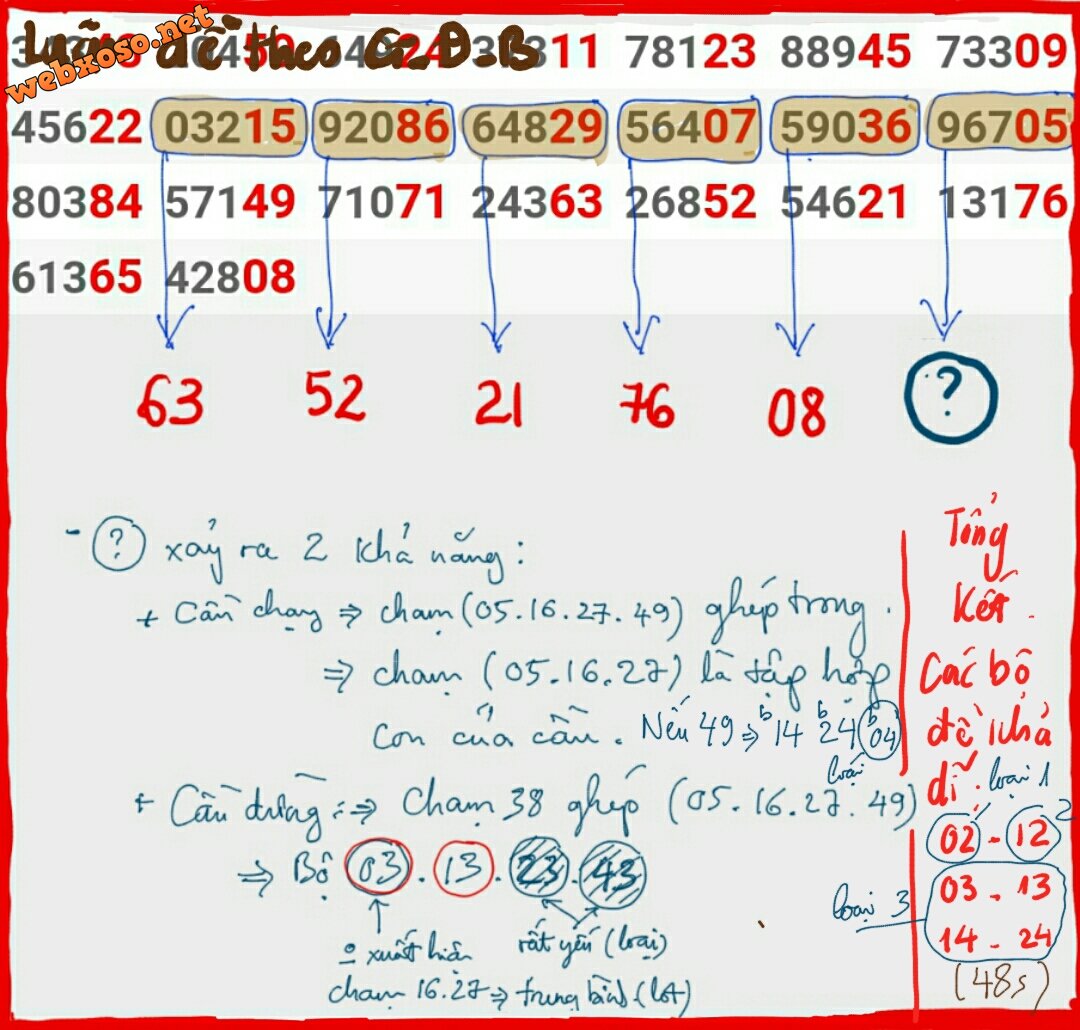 đề theo G_Đ_B
webxoso.net
11 78123 88945 73309
45622 03215 92086 64829 56407 59036 96705
80384 57149 71071 24363 26852 54621 13176
61365 42808
63 52 21 76 08 ?
- ? xảy ra 2 khả năng:
+ Cầu chạy => chạm (05.16.27.49) ghép trong.
=> chạm (05.16.27) là tập hợp
con của cầu. Nếu 49 => b14 b24 b04
loại
+ Cầu dừng: => Chạm 38 ghép (05.16.27.49)
=> Bộ 03. 13. 23. 43
xuất hiện
rất yếu (loại)
chạm 16.27 => trung bình (lót)
Tổng
kết.
Các bộ
đề khả
dĩ. loại 1
02 - 12 2
loại 3
03 - 13
14 - 24
(48s)